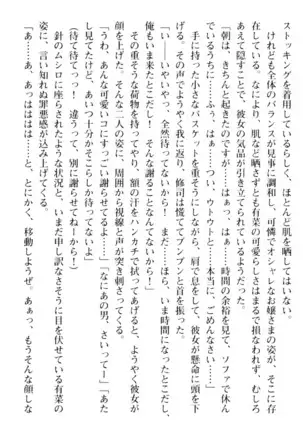 ストッキングを着用しているらしく、ほとんど肌を晒してはいない。
けれども全体のバランスが見事に調和し、可憐でオシャレなお嬢さまの姿が、そこに存
在している。なにより、肌など晒さずとも有菜の可愛らしさはまるで損なわれず、むしろ
あえて隠すことで、彼女の気品が引き立てられて見えた。
「朝は、きちんと起きたのですが……はぁ、はぁ……時間の余裕を見て、ソファで休ん
でいるうちに……ふぅ、はぁ……つい、ウトウトと……本当に、ごめんなさい……っ」
手に持った小さなバスケットを重そうにしながら、肩で息をして、彼女が懸命に頭を下
げる。その声でようやく我に返り、修司は慌ててブンブンと首を振った。
「い――いやいやっ、全然待ってないから！　……まだ……ほら、いま時間になったとこだし、
俺もいま来たとこだし！　そんな謝ることなんてないから！」
その重そうな荷物を持ってやり、額の汗をハンカチで拭ってあげると、ようやく彼女が
顔を上げた。そんな二人の姿に、周囲から視線と声が突き刺さってくる。
「うわ、あんな可愛いコにすっごい謝らせてるよ……」「なにあの男、さいってー」「あた
し見てたけど、あいつ十分かそこらしか待ってないよ」
（待て待てっ！　違うって、別に謝らせてねーから！）
針のムシロに座らされたような状況と、いまだ申し訳なさそうに目を伏せている有菜の
姿に、言い知れぬ罪悪感が込み上げてくる。
「あ……あ、あっはははは……と、とにかく、移動しようぜ。あぁっ、もうそんな顔しな